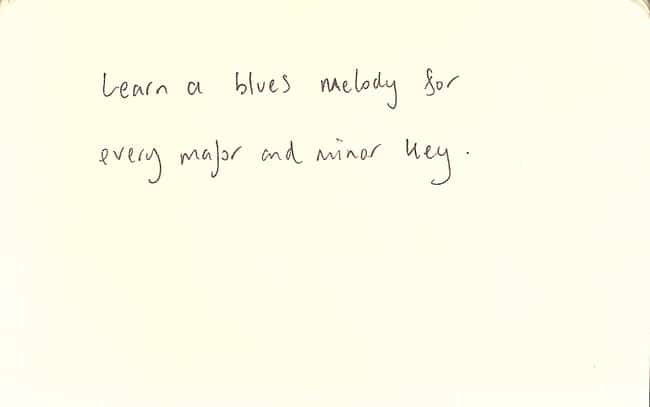 Learn a blues melody for
every major and minor key.